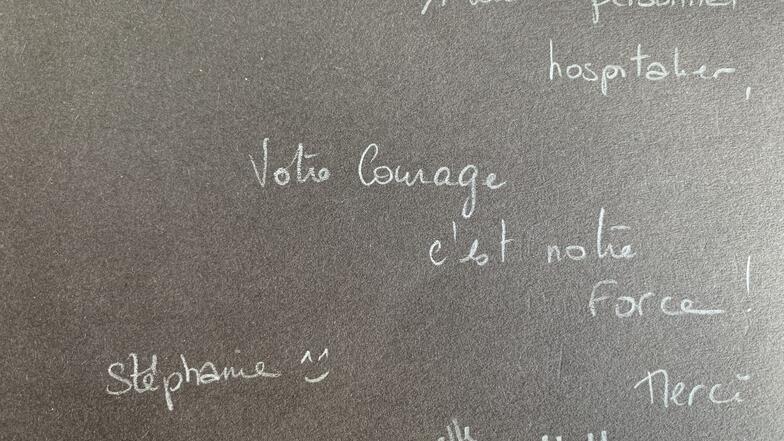 personnel
hospitalier,
Votre Courage
c'est notre
Force !
Stéphanie ^^
Merci